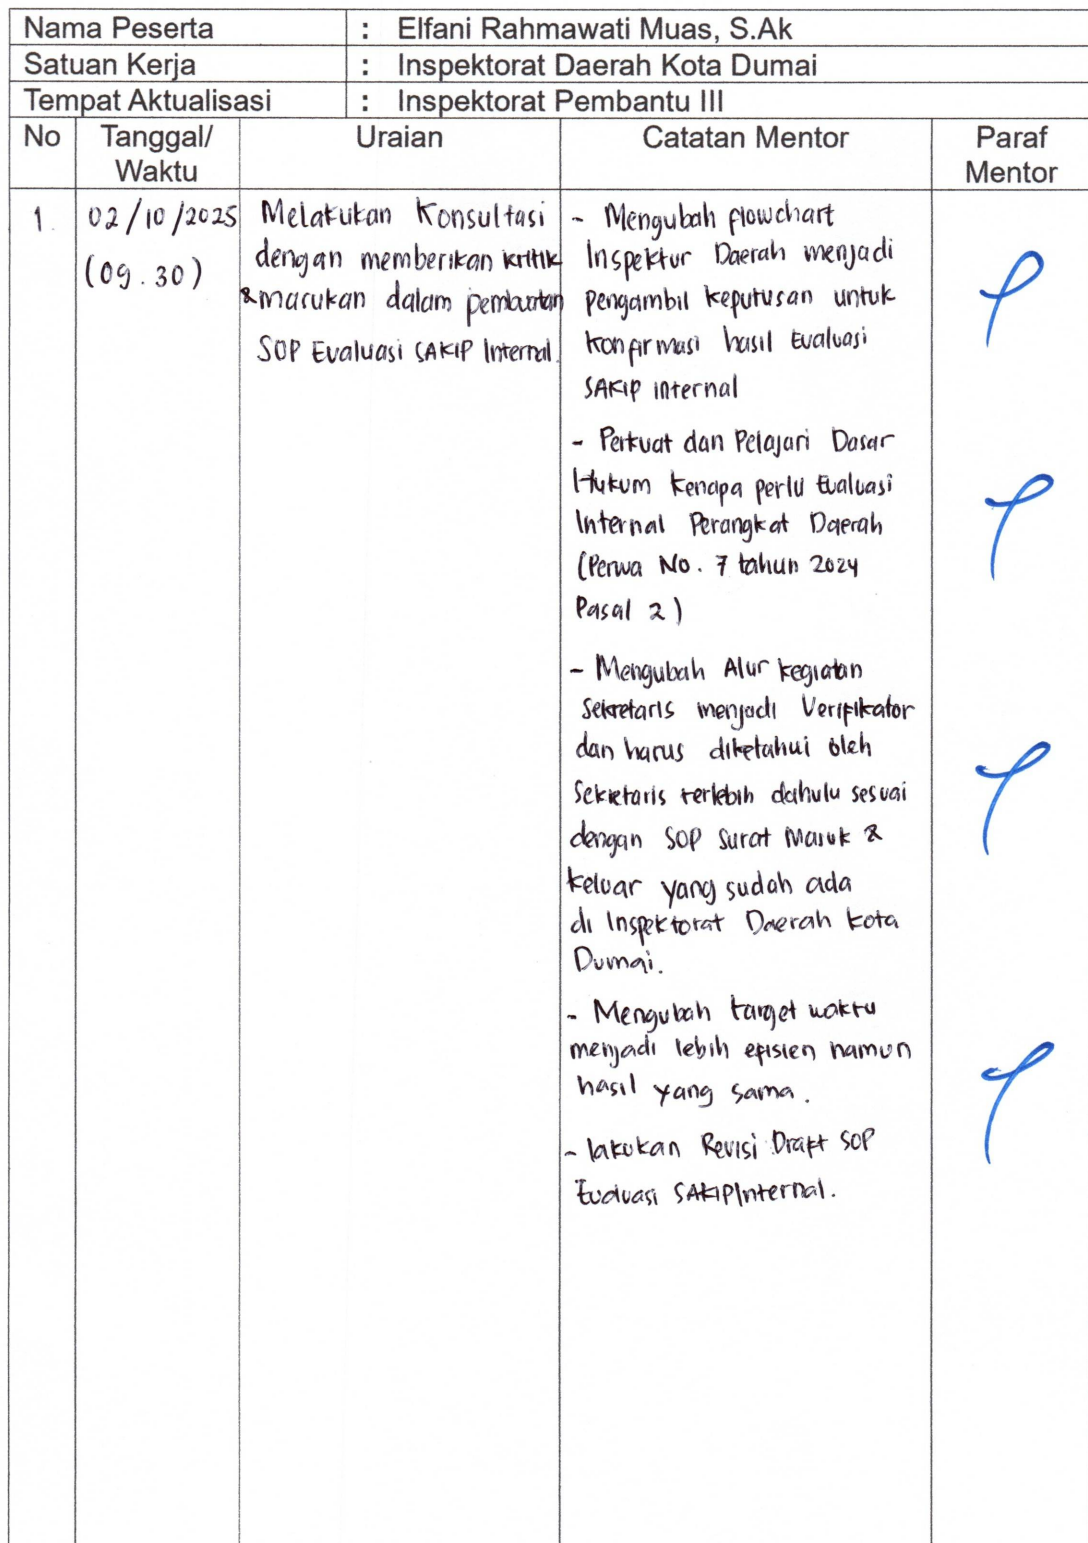 Nama Peserta : Elfani Rahmawati Muas, S.Ak
Satuan Kerja : Inspektorat Daerah Kota Dumai
Tempat Aktualisasi : Inspektorat Pembantu III
No Tanggal/ Waktu Uraian Catatan Mentor Paraf Mentor
1. 02/10/2025
(09.30)
Melakukan Konsultasi
dengan memberikan kritik
& masukan dalam pembuatan
SOP Evaluasi SAKIP Internal.
- Mengubah flowchart
Inspektur Daerah menjadi
pengambil keputusan untuk
konfirmasi hasil Evaluasi
SAKIP internal
- Perkuat dan Pelajari Dasar
Hukum kenapa perlu Evaluasi
Internal Perangkat Daerah
(Perwa No. 7 tahun 2024
Pasal 2)
- Mengubah Alur kegiatan
Sekretaris menjadi Verifikator
dan harus diketahui oleh
Sekretaris terlebih dahulu sesuai
dengan SOP Surat Masuk &
keluar yang sudah ada
di Inspektorat Daerah Kota
Dumai.
- Mengubah target waktu
menjadi lebih efisien namun
hasil yang sama.
- lakukan Revisi Draft SOP
Evaluasi SAKIP Internal.